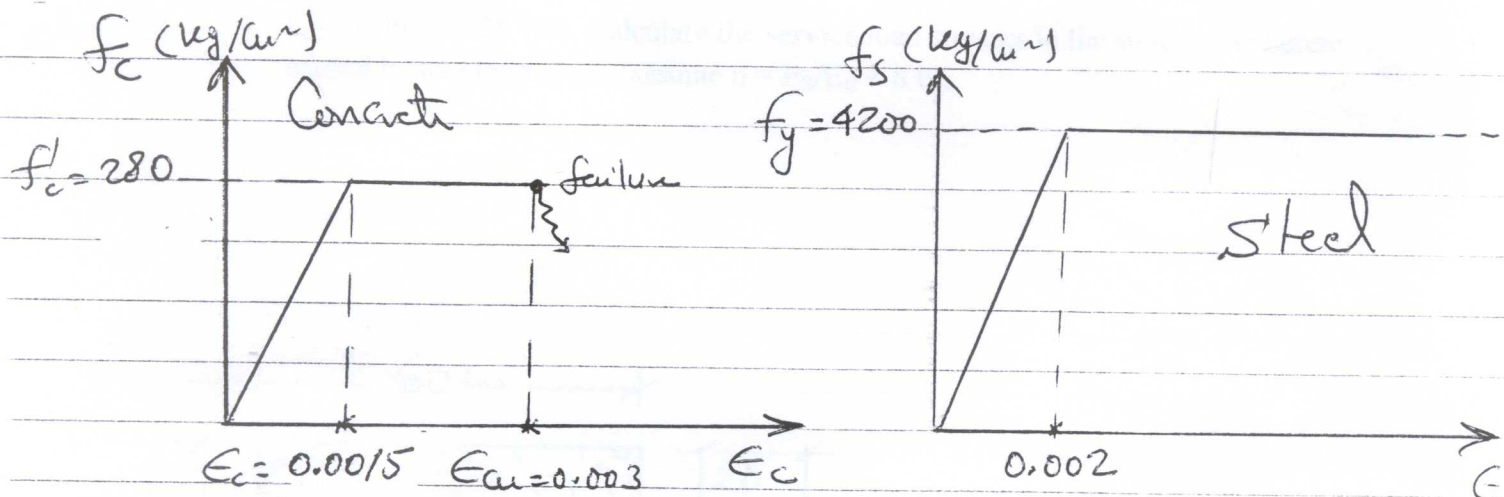 fc (kg/cm²)
Concrete
f'c = 280
failure
ϵc = 0.0015 ϵcu = 0.003 ϵc
fs (kg/cm²)
fy = 4200
Steel
0.002
ϵ